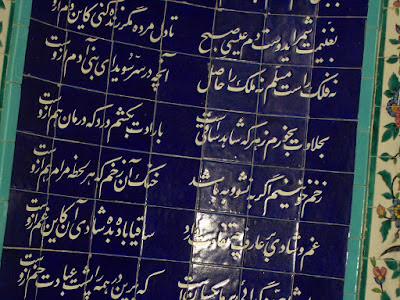 بغنیمت شمر ای دوست دم عیسی صبح تا دل مرده مگر زنده کنی کاین دم ازوست
نه فلک راست مسلم نه ملک را حاصل آنچه در سر سویدای بنی آدم ازوست
بحلاوت بخورم زهر که شاهد ساقی است بارادت بکشم درد که درمان هم ازوست
زخم خونینم اگر به نشود به باشد خنک آن زخم که هر لحظه مرا مرهم ازوست
غم و شادی بر عارف چه تفاوت دارد ساقیا باده بده شادی آن کاین غم ازوست
گدائی بر ما یکسان است که برین در همه را پشت عبادت خم ازوست